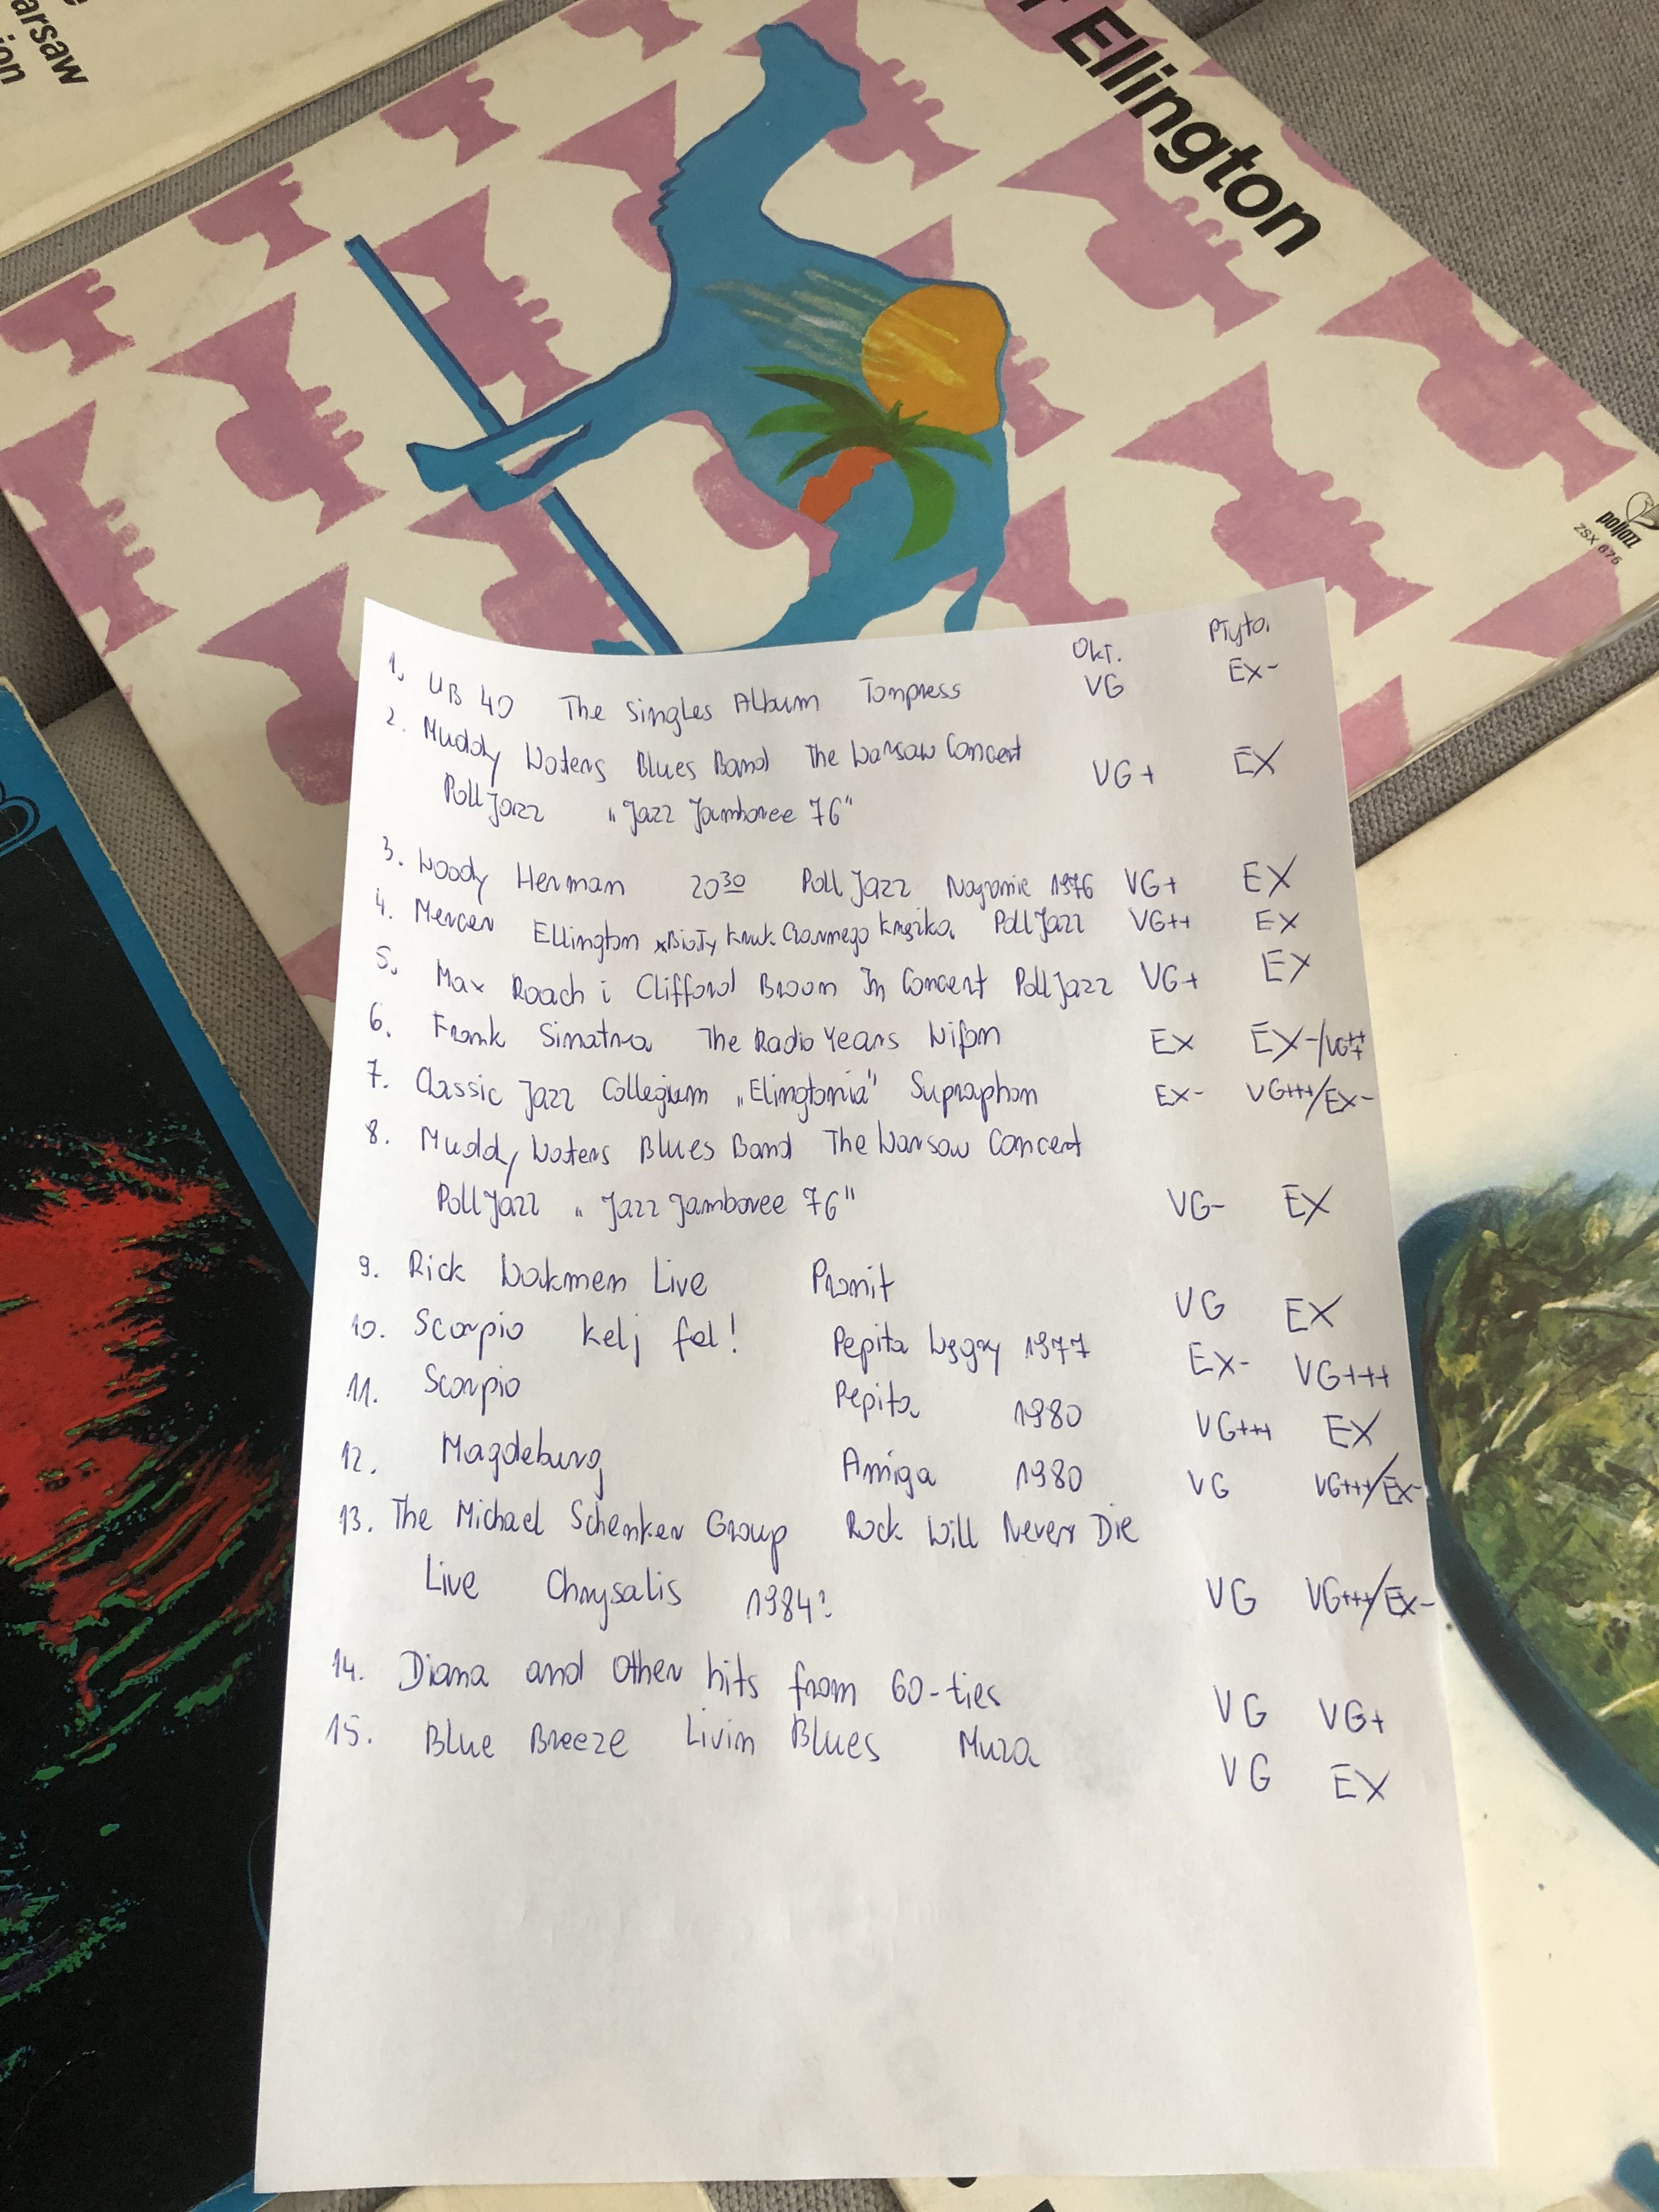 arsaw
ion
Ellington
polljazz
ZSX 676
Okł. Płyta
1. UB 40 The Singles Album Tonpress VG EX-
2. Muddy Waters Blues Band The Warsaw Concert
Poll Jazz „Jazz Jamboree 76" VG+ EX
3. Woody Herman 2030 Poll Jazz Nagranie 1976 VG+ EX
4. Mercer Ellington xBiały Kruk Czarnego Krążka Poll Jazz VG++ EX
5. Max Roach i Clifford Broom In Concert Poll Jazz VG+ EX
6. Frank Sinatra The Radio Years Wifon EX EX-/VG++
7. Classic Jazz Collegium „Elingtonia" Supraphon EX- VG+++/EX-
8. Muddy Waters Blues Band The Warsaw Concert
Poll Jazz „Jazz Jamboree 76" VG- EX
9. Rick Wakmen Live Pronit VG EX
10. Scorpio kelj fel! Pepita Węgry 1977 EX- VG+++
11. Scorpio Pepita 1980 VG+++ EX
12. Magdeburg Amiga 1980 VG VG+++/EX-
13. The Michael Schenker Group Rock Will Never Die
Live Chrysalis 1984? VG VG+++/EX-
14. Diana and Other hits from 60-ties VG VG+
15. Blue Breeze Livin Blues Muza VG EX